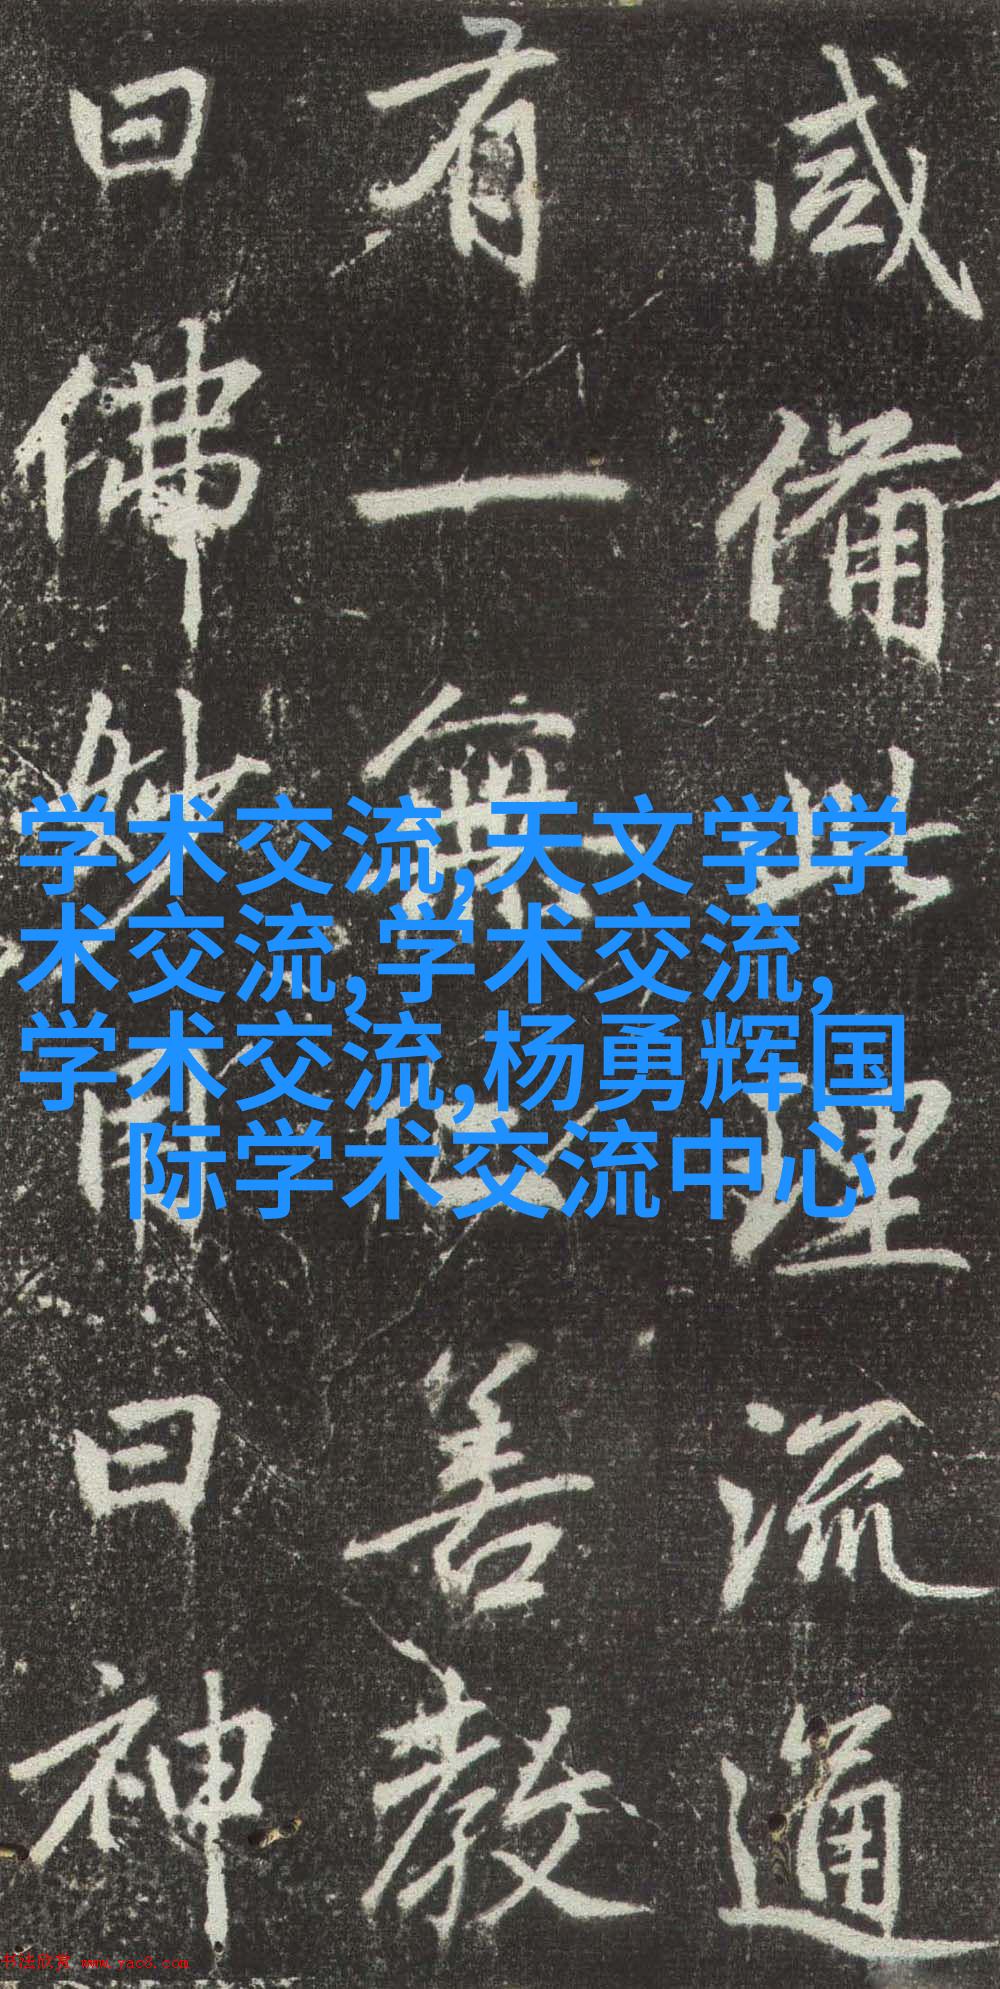 咸備此理流通
有一無善教
曰佛曰神
学术交流,天文学学
术交流,学术交流,
学术交流,杨勇辉国
际学术交流中心
书法欣赏 www.yac8.com